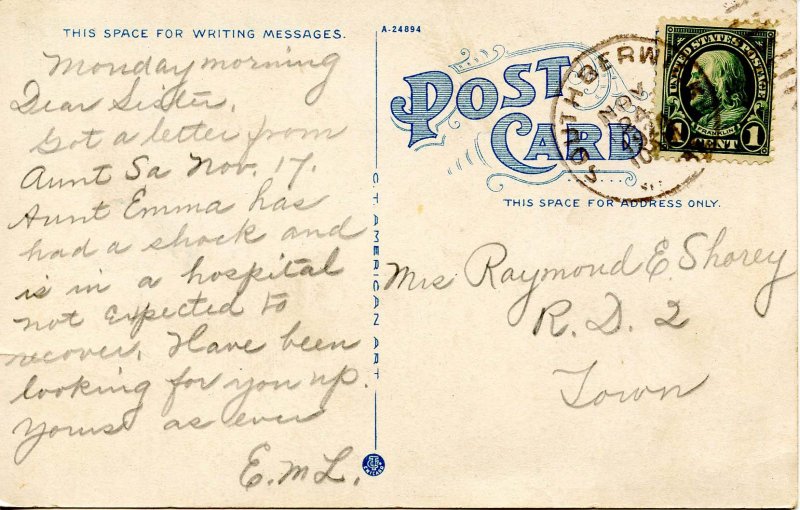 THIS SPACE FOR WRITING MESSAGES.
Monday morning
Dear Sister,
Got a letter from
Aunt Sa Nov. 17.
Aunt Emma has
had a shock and
is in a hospital
not expected to
recover. Have been
looking for you up.
Yours as ever
E.M.L.
A-24894
C.T. AMERICAN ART
POST
CARD
SOUTH BERWI
NOV
THIS SPACE FOR ADDRESS ONLY.
UNITED STATES POSTAGE
FRANKLIN
1
CENT
Mrs Raymond E. Shorey
R.D. 2
Town